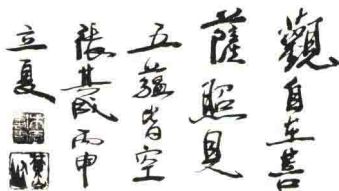 觀自在菩
薩照見
五蘊皆空
張其成丙申
立夏